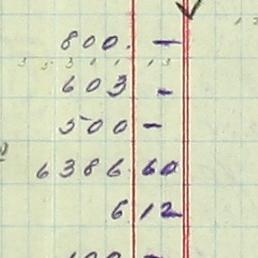 800. —
603 -
500 -
6386. 60
6 12